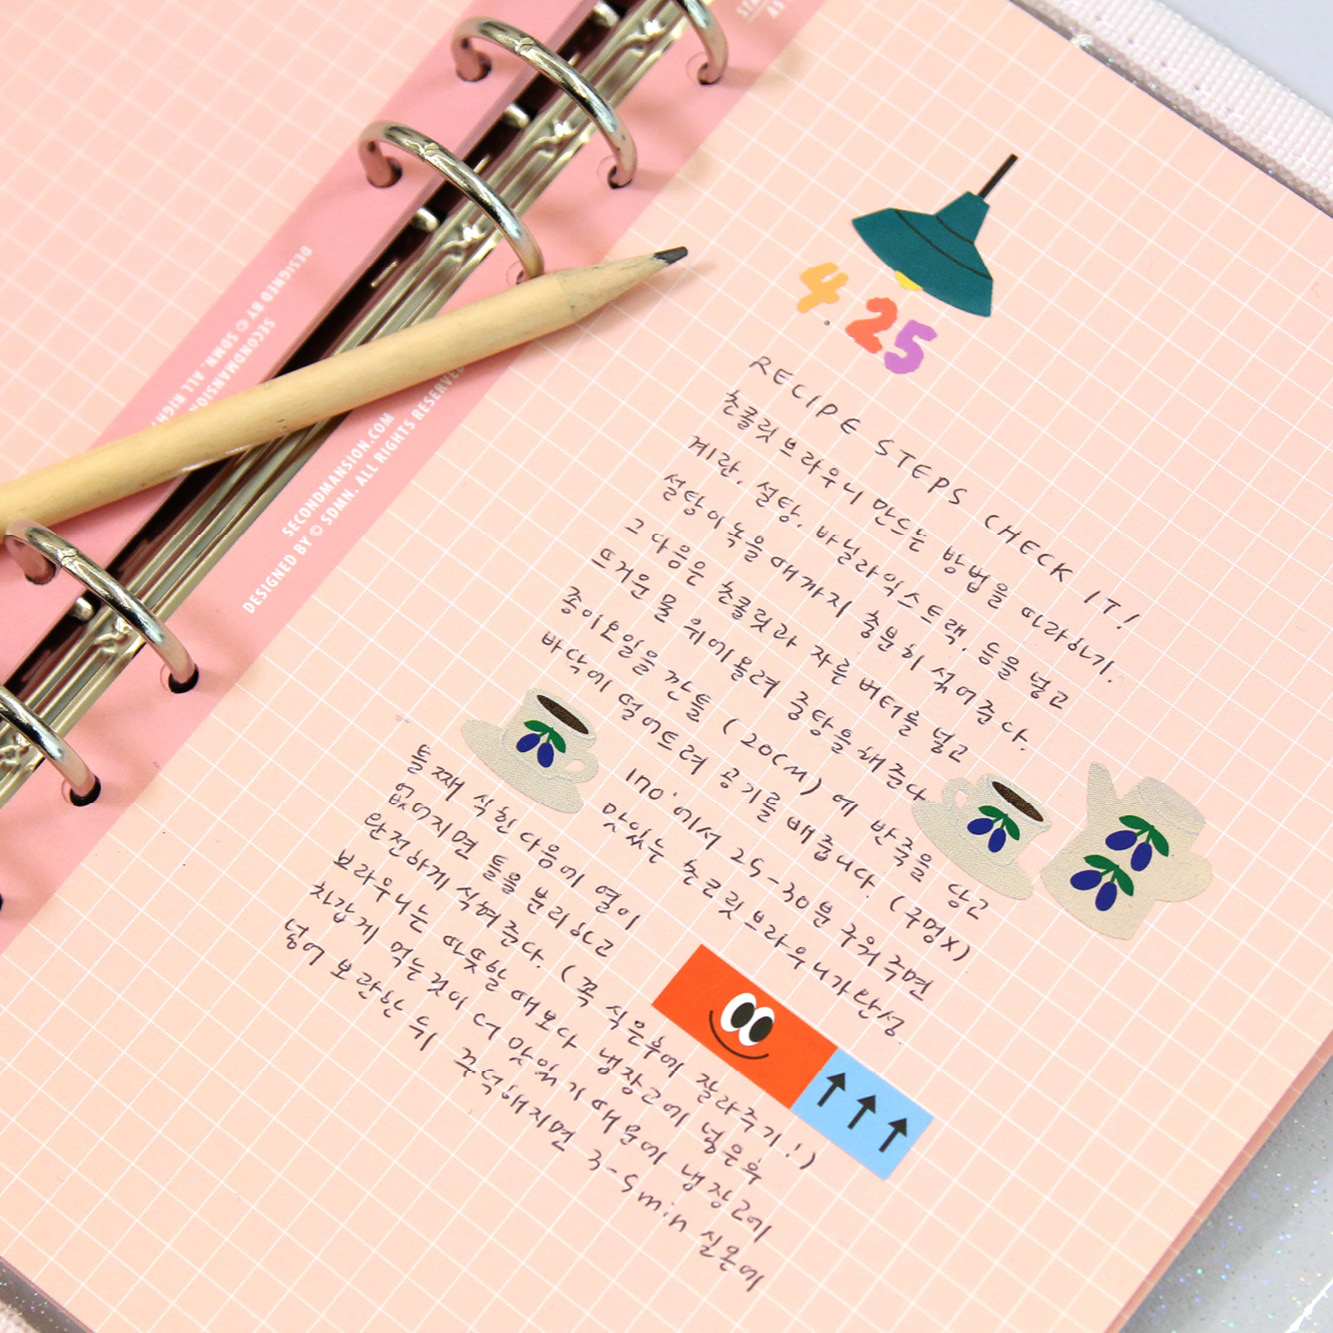 DESIGNED BY © SDMN. ALL RIGH
SECONDMANSION
SECONDMANSION.COM
DESIGNED BY © SDMN. ALL RIGHTS RESERVED
4.25
RECIPE STEPS CHECK IT!
초콜릿 브라우니 만드는 방법을 따라하기.
계란, 설탕, 바닐라익스트랙, 등을 넣고
설탕이 녹을 때까지 충분히 섞어준다.
그 다음은 초콜릿과 자른 버터를 넣고
뜨거운 물 위에 올려 중탕을 해준다
종이호일을 깐 틀 (20CM) 에 반죽을 담고
바닥에 떨어트려 공기를 빼줍니다. (구멍X)
170°에서 25-30분 구워주면
맛있는 초코릿브라우니가 완성.
틀 째 식힌 다음에 열이
없어지면 틀을 분리하고
완전하게 식혀준다. (꼭 식은후에 잘라주기!)
브라우니는 따뜻할 때보다 냉장고에 넣은후
차갑게 먹는것이 더 맛있기 때문에 냉장고에
넣어 보관한 뒤 꾸덕해지면 3-5min 실온에